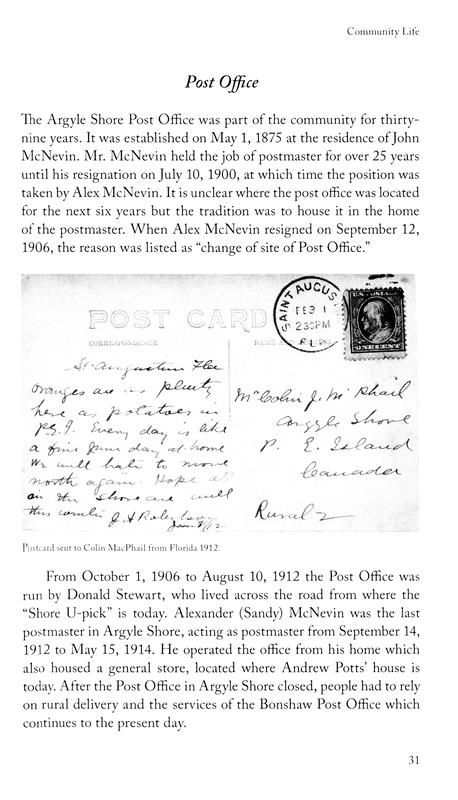 Community Life
Post Office
The Argyle Shore Post Office was part of the community for thirty-
nine years. It was established on May 1, 1875 at the residence of John
McNevin. Mr. McNevin held the job of postmaster for over 25 years
until his resignation on July 10, 1900, at which time the position was
taken by Alex McNevin. It is unclear where the post office was located
for the next six years but the tradition was to house it in the home
of the postmaster. When Alex McNevin resigned on September 12,
1906, the reason was listed as “change of site of Post Office.”
POST CARD
CORRESPONDENCE
SAINT AUGUS
FEB 1
230PM
FLA
U.S. POSTAGE
ONE CENT
St Augustine Flee
Oranges are as plenty
here as potatoes in
P.E.I. Every day is like
a fine June day at home
We will hate to move
north again. Hope all
on the Shore are well
this winter J. A
Mr Colin J. McPhail
Argyle Shore
P. E. Island
Canada
Rural 2
Postcard sent to Colin MacPhail from Florida 1912.
From October 1, 1906 to August 10, 1912 the Post Office was
run by Donald Stewart, who lived across the road from where the
“Shore U-pick” is today. Alexander (Sandy) McNevin was the last
postmaster in Argyle Shore, acting as postmaster from September 14,
1912 to May 15, 1914. He operated the office from his home which
also housed a general store, located where Andrew Potts’ house is
today. After the Post Office in Argyle Shore closed, people had to rely
on rural delivery and the services of the Bonshaw Post Office which
continues to the present day.
31